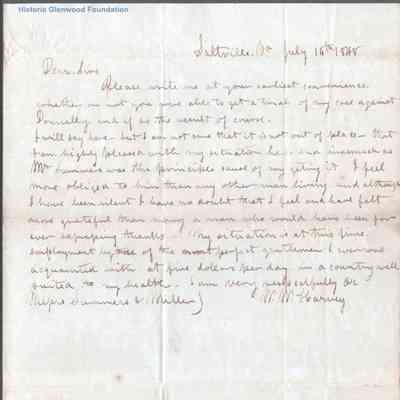 Historic Glenwood Foundation
Saltville, Va July 16th 1868
Dear Sirs
Please write me at your earliest convenience
whether or not you were able to get a trial of my case against
Donnelly and if so the result of course.
I will say here but I am not sure that it is not out of place that
I am highly pleased with my situation here and inasmuch as
Mr Summers was the principle cause of my geting it I feel
more obliged to him than any other man living and although
I have been silent I have no doubt that I feel and have felt
more grateful than many a man who would have been for
ever expressing thanks. My situation is at this time
employment by one of the most perfect gentlemen I ever was
acquainted with at five dolers per day in a country well
suited to my health. I am very respectfully &c
Messrs Summers & Miller W. W.